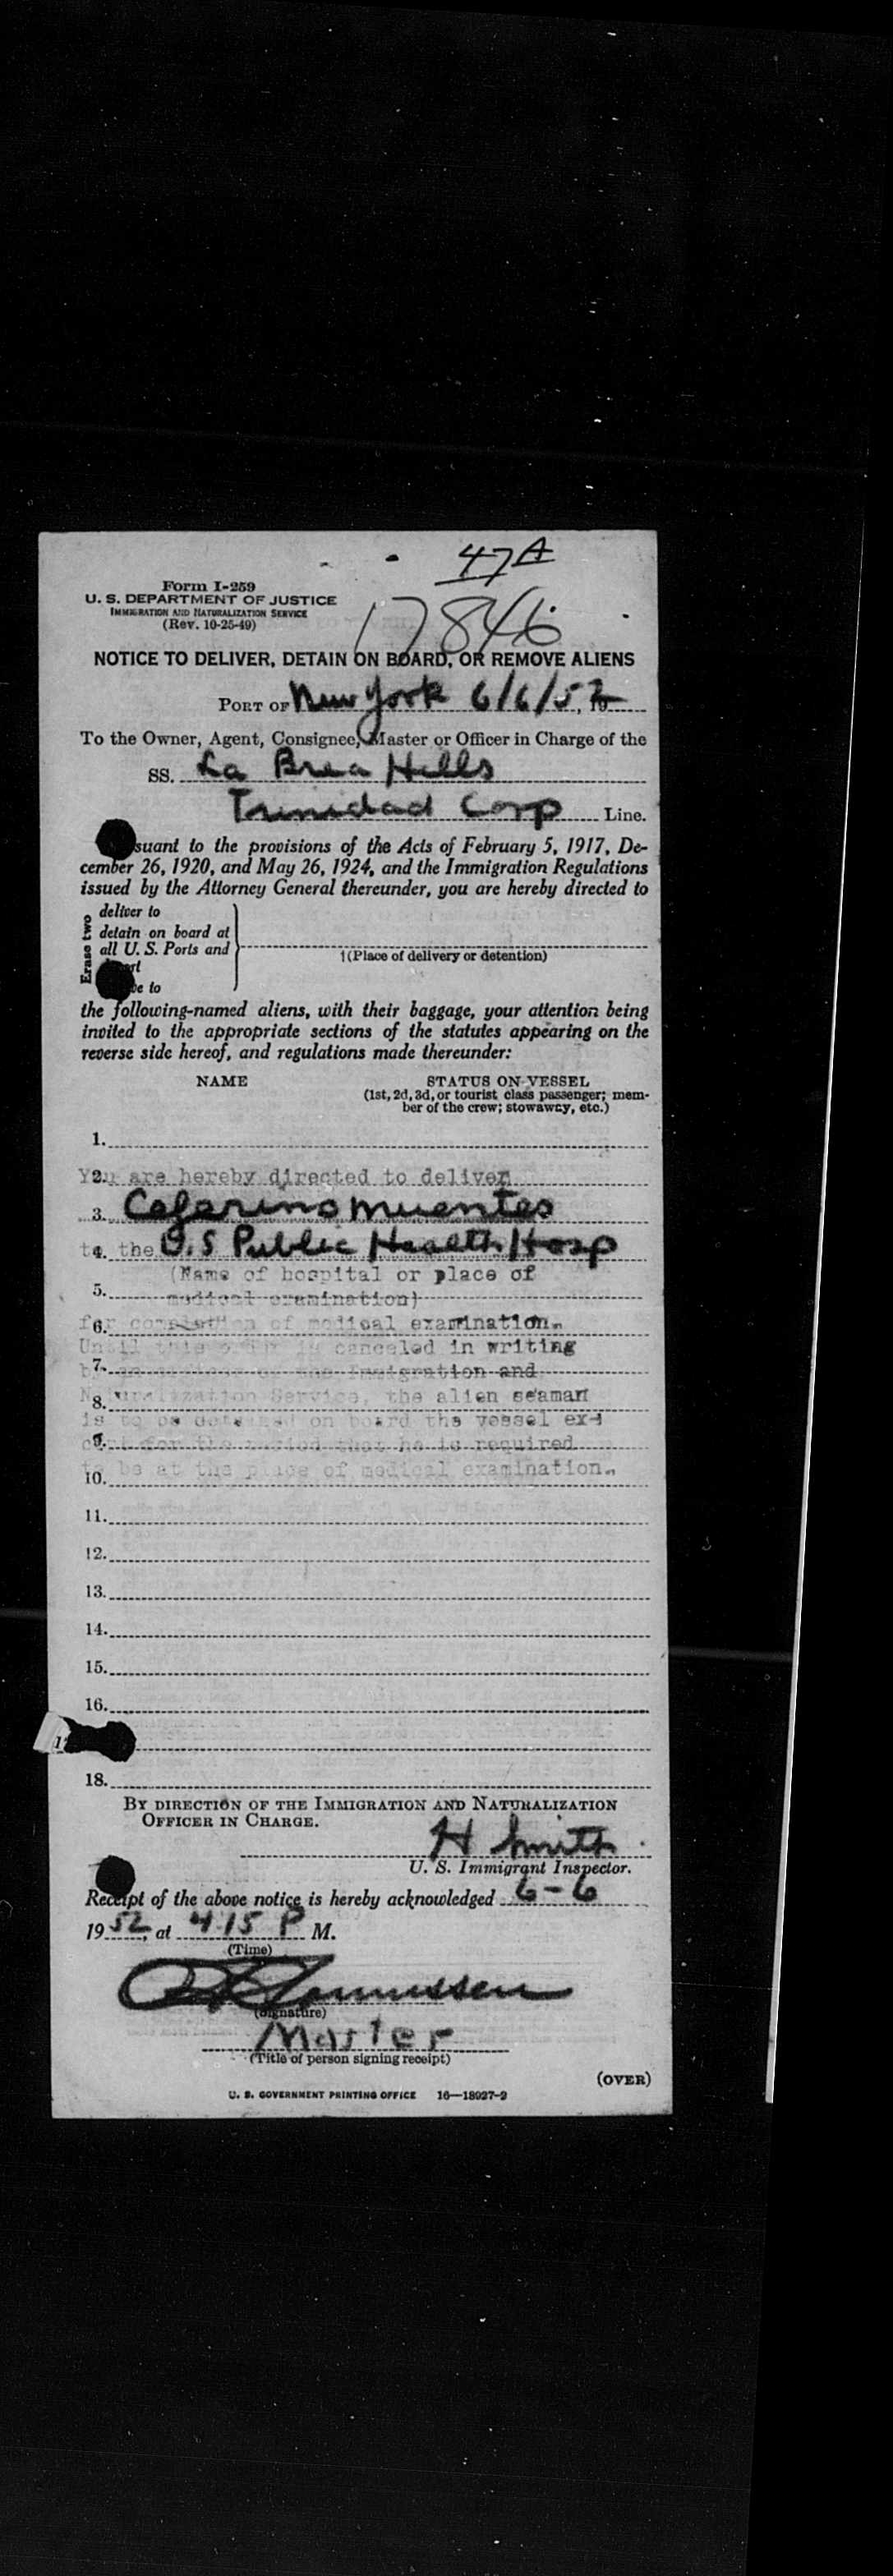 47A
Form I-259
U. S. DEPARTMENT OF JUSTICE
IMMIGRATION AND NATURALIZATION SERVICE
(Rev. 10-25-49)
17846
NOTICE TO DELIVER, DETAIN ON BOARD, OR REMOVE ALIENS
PORT OF New York 6/6/52, 19
To the Owner, Agent, Consignee, Master or Officer in Charge of the
SS. La Brea Hills
Trinidad Corp Line.
suant to the provisions of the Acts of February 5, 1917, De-
cember 26, 1920, and May 26, 1924, and the Immigration Regulations
issued by the Attorney General thereunder, you are hereby directed to
Erase two
deliver to
detain on board at
all U. S. Ports and
rt
ve to
†(Place of delivery or detention)
the following-named aliens, with their baggage, your attention being
invited to the appropriate sections of the statutes appearing on the
reverse side hereof, and regulations made thereunder:
NAME STATUS ON VESSEL
(1st, 2d, 3d, or tourist class passenger; mem-
ber of the crew; stowaway, etc.)
1.
2. You are hereby directed to deliver
3. Ceferino Muentes
4. to the U.S Public Health Hosp
(Name of hospital or place of
5. medical examination)
6. for completion of medical examination.
Until this order is canceled in writing
7. by an officer of the Immigration and
8. Naturalization Service, the alien seaman
is to be detained on board the vessel ex-
9. cept for the period that he is required
to be at the place of medical examination.
10.
11.
12.
13.
14.
15.
16.
1
18.
BY DIRECTION OF THE IMMIGRATION AND NATURALIZATION
OFFICER IN CHARGE.
H Smith
U. S. Immigrant Inspector.
Receipt of the above notice is hereby acknowledged 6-6
1952, at 415 P M.
(Time)
Rasmussen
(Signature)
Master
(Title of person signing receipt)
(OVER)
U. S. GOVERNMENT PRINTING OFFICE 16—18027-2